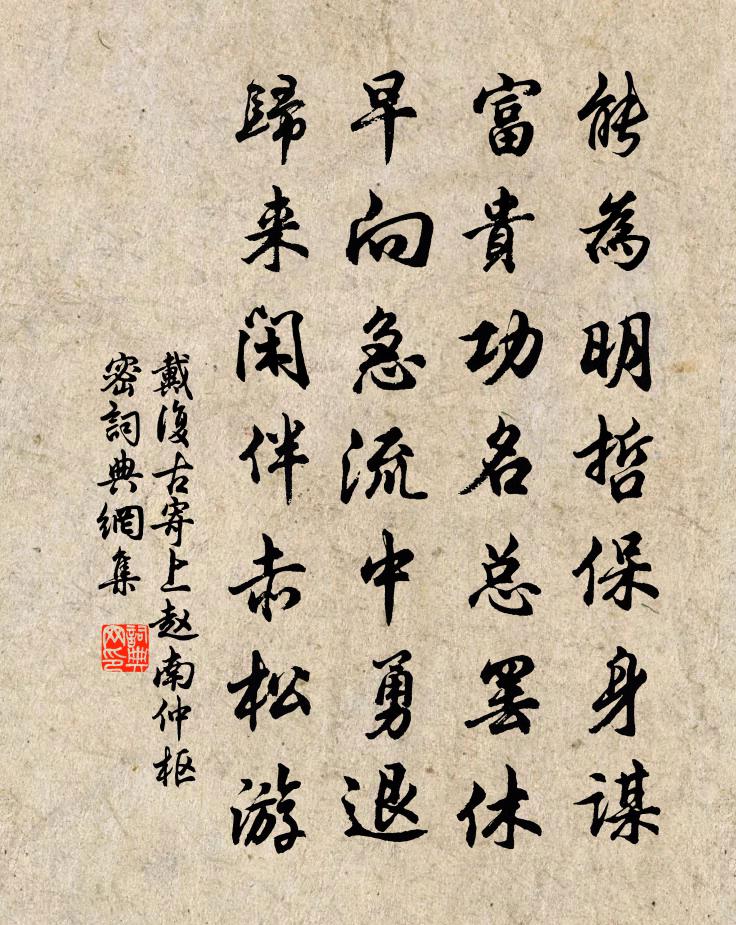 能為明哲保身謀
富貴功名总罢休
早向急流中勇退
歸来闲伴赤松游
戴復古寄上赵南仲枢
密詞典網集
詞典网印